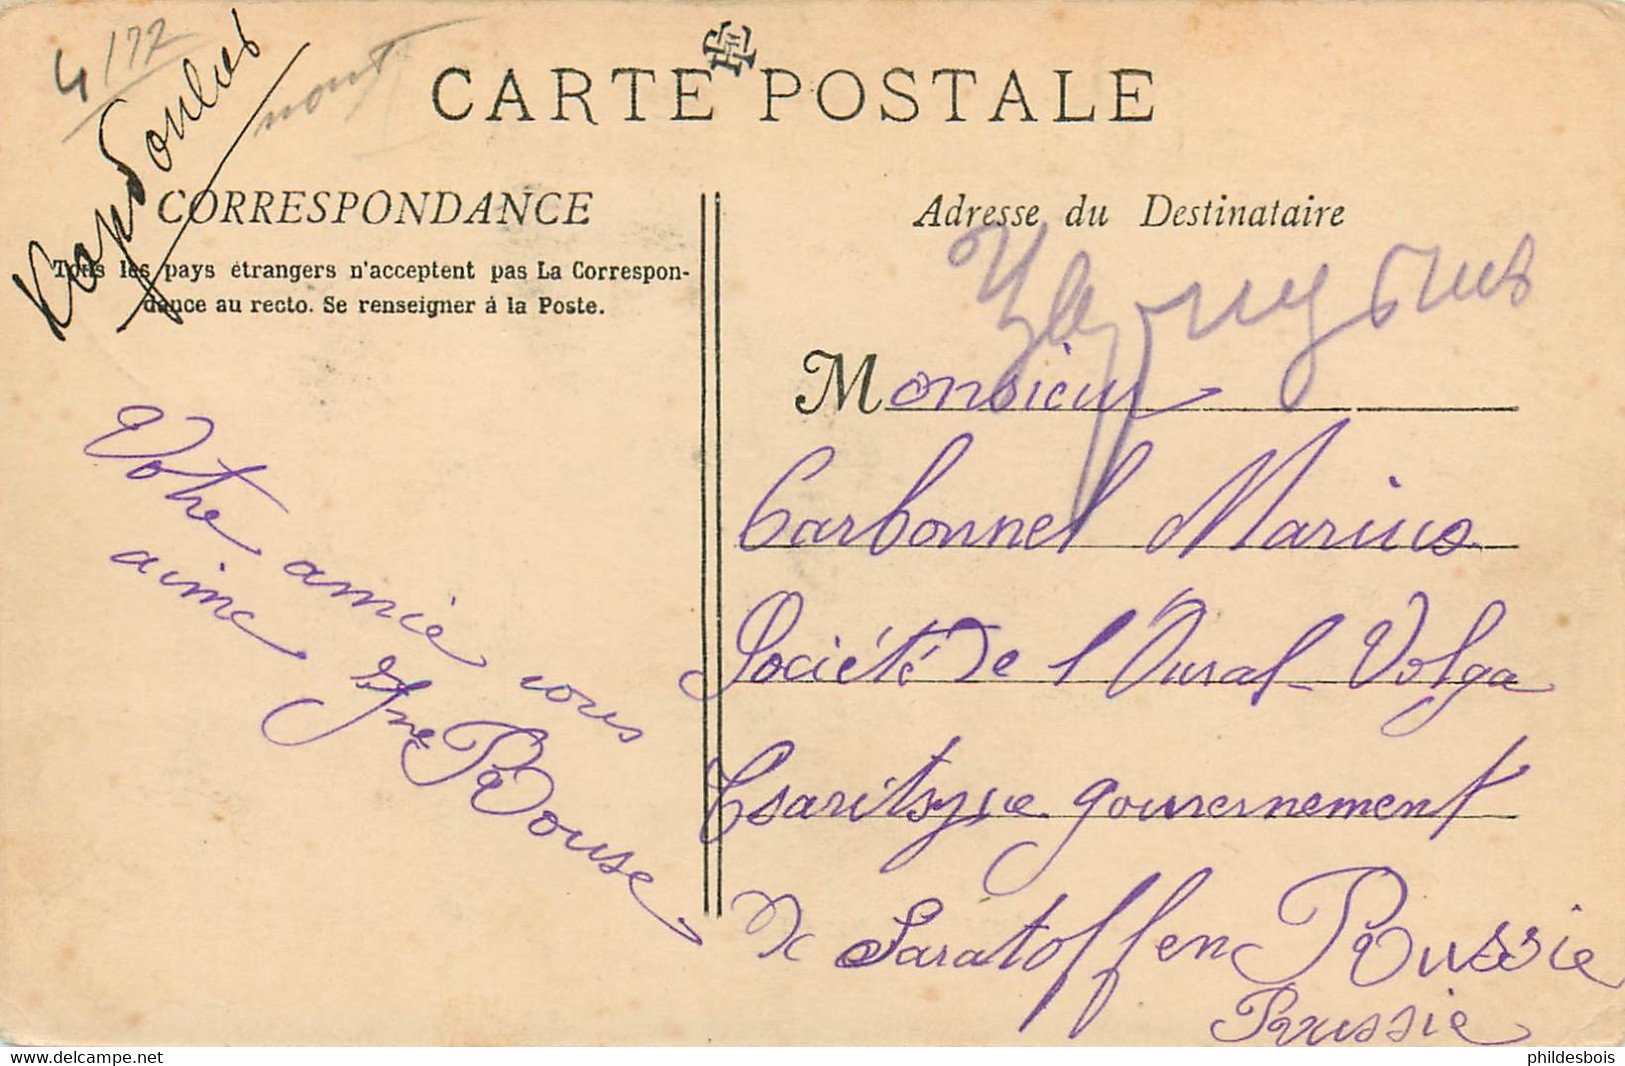 4/172
mont
CARTE POSTALE
CORRESPONDANCE
Tous les pays étrangers n'acceptent pas La Correspon-
dance au recto. Se renseigner á la Poste.
Votre amie vous
aime
Rouse
Adresse du Destinataire
Monsieur
Carbonnel Marius
Société de l'Oural-Volga
Tsaritsyne gouvernement
de Saratoff en Russie
Russie
phildesbois